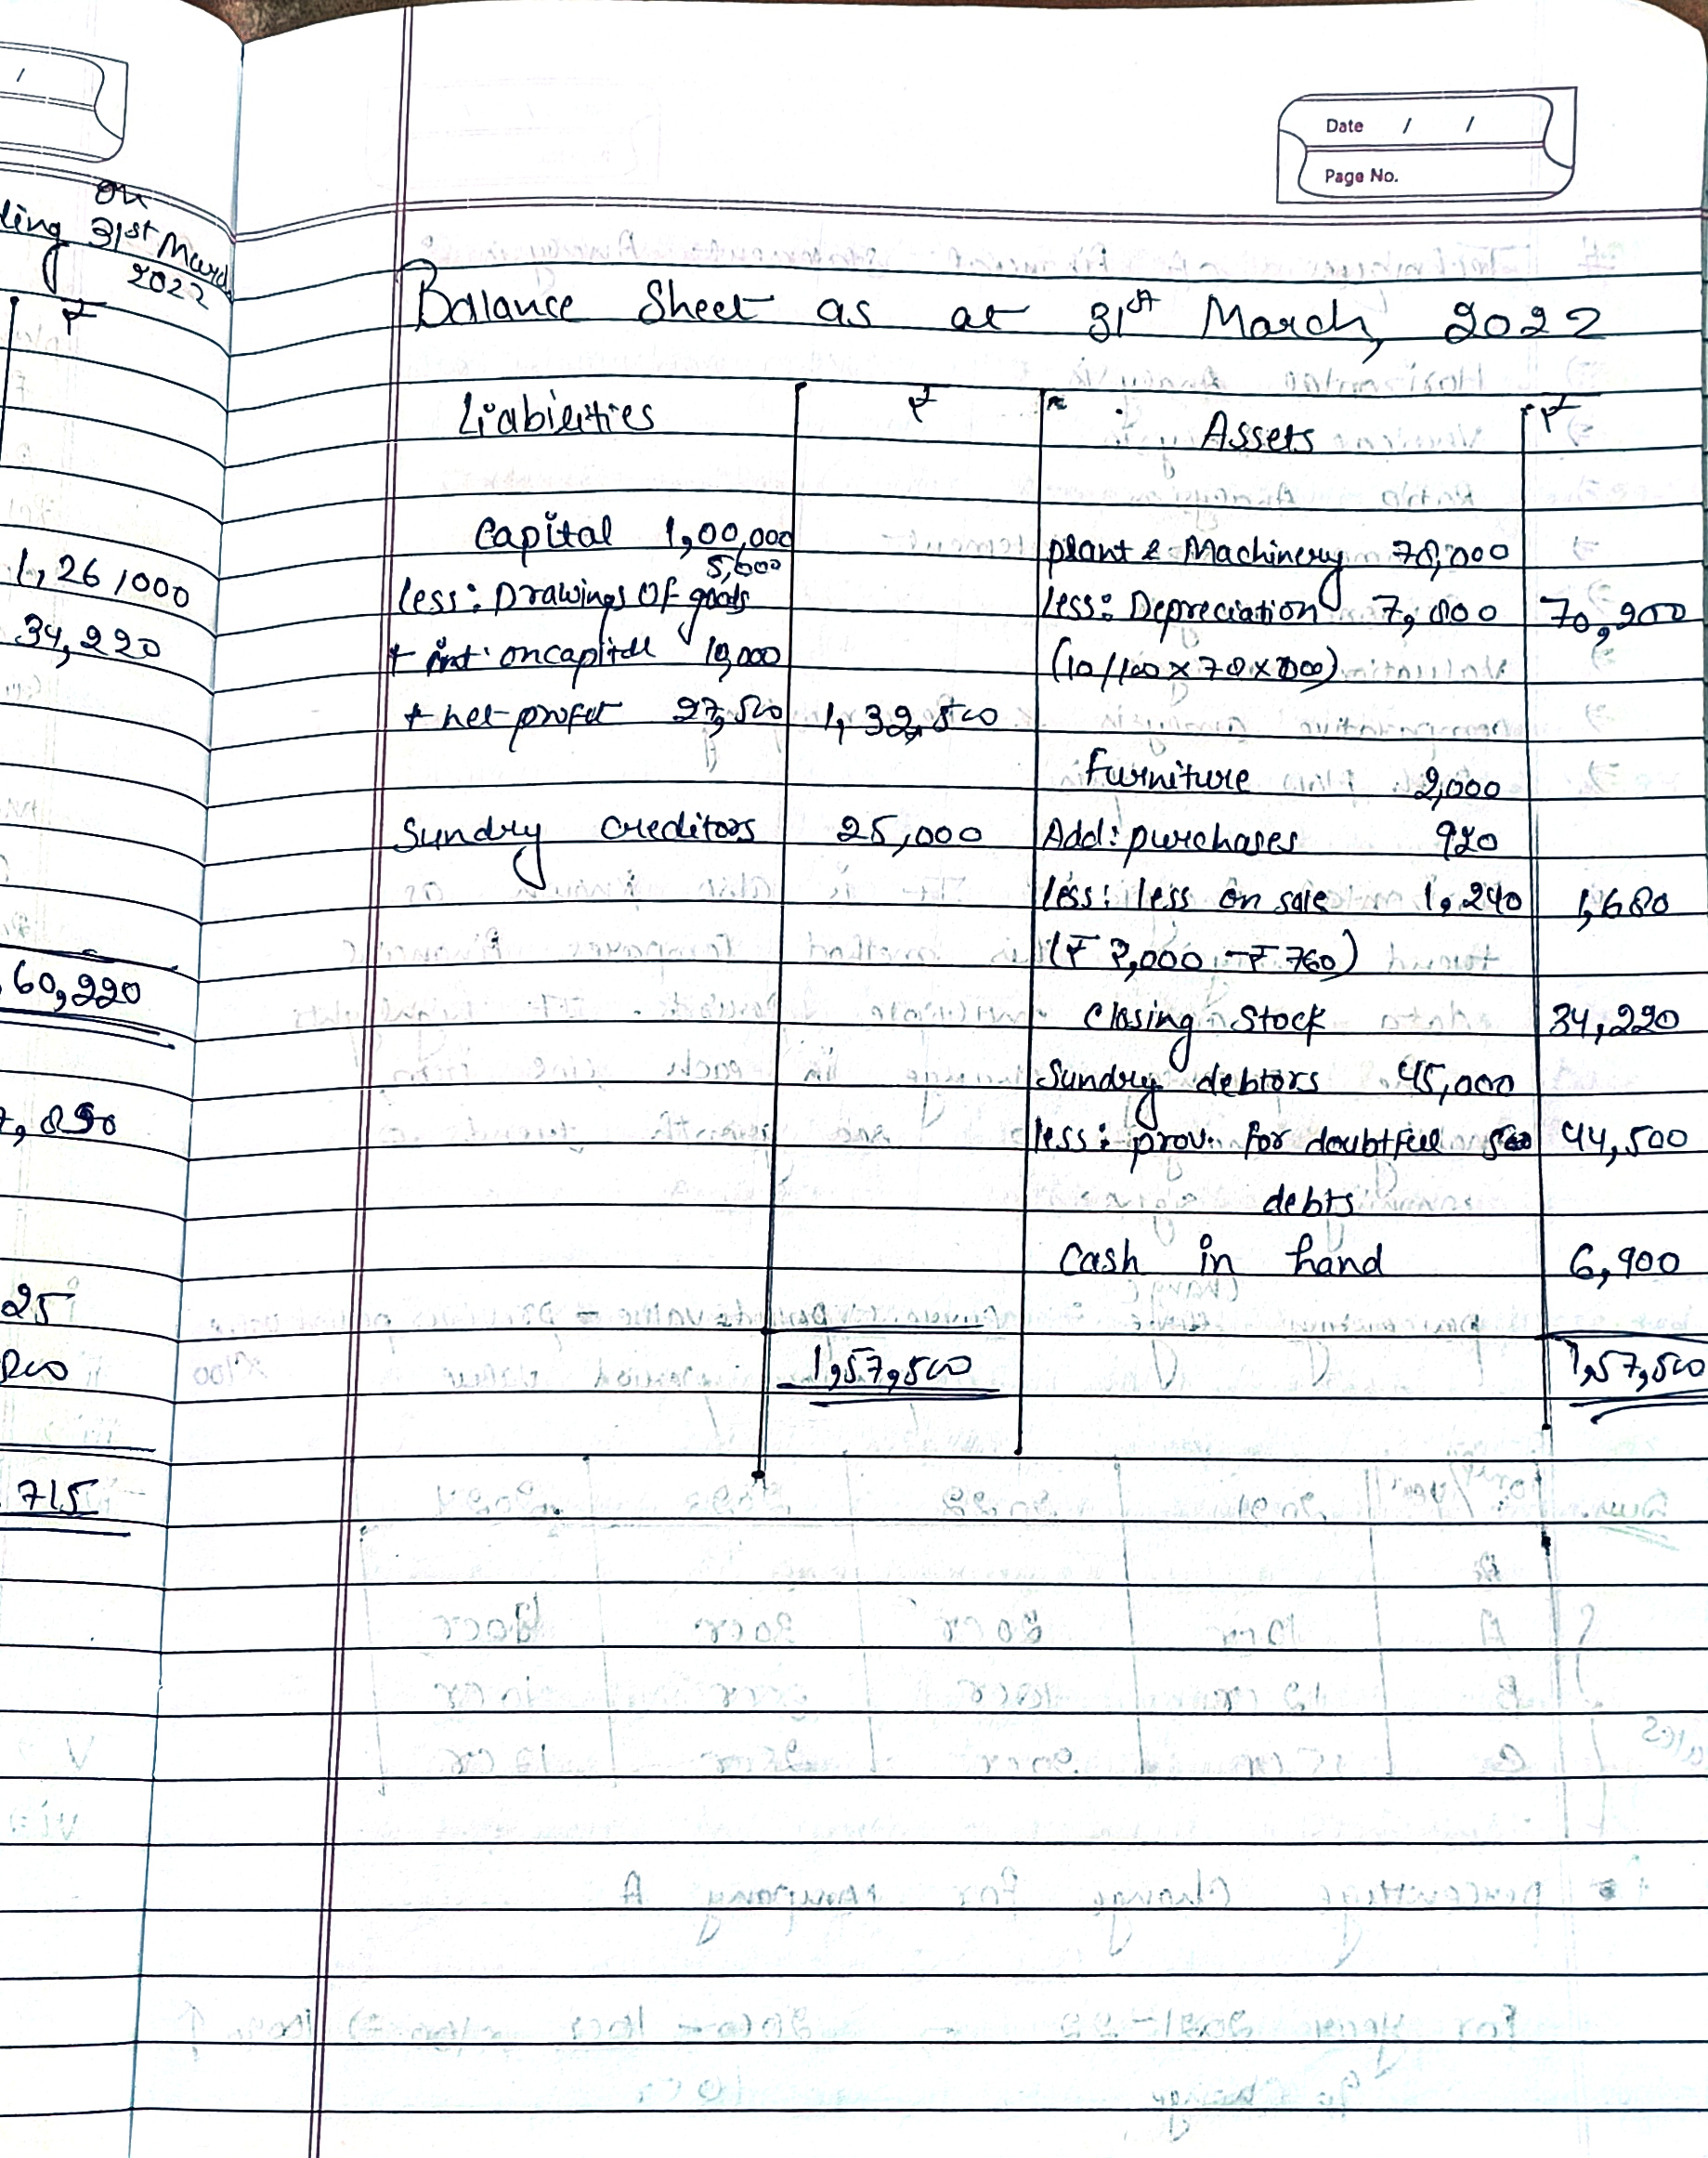 Date / /
Page No.
on
ding 31st March
2022
₹
1,26,000
34,220
60,220
25
715
Balance Sheet as at 31st March, 2022
Liabilities ₹ Assets ₹
Capital 1,00,000 plant & Machinery 78,000
5,600
less: Drawings Of goods less: Depreciation 7,800 70,200
+ int. on capital 10,000 (10/100 x 78 x 000)
+ net profit 27,500 1,32,500
furniture 2,000
Sundry creditors 25,000 Add: purchases 920
less: less on sale 1,240 1,680
(₹ 2,000 - ₹ 760)
Closing Stock 34,220
Sundry debtors 45,000
less: prov. for doubtful 500 44,500
debts
Cash in hand 6,900
1,57,500 1,57,500